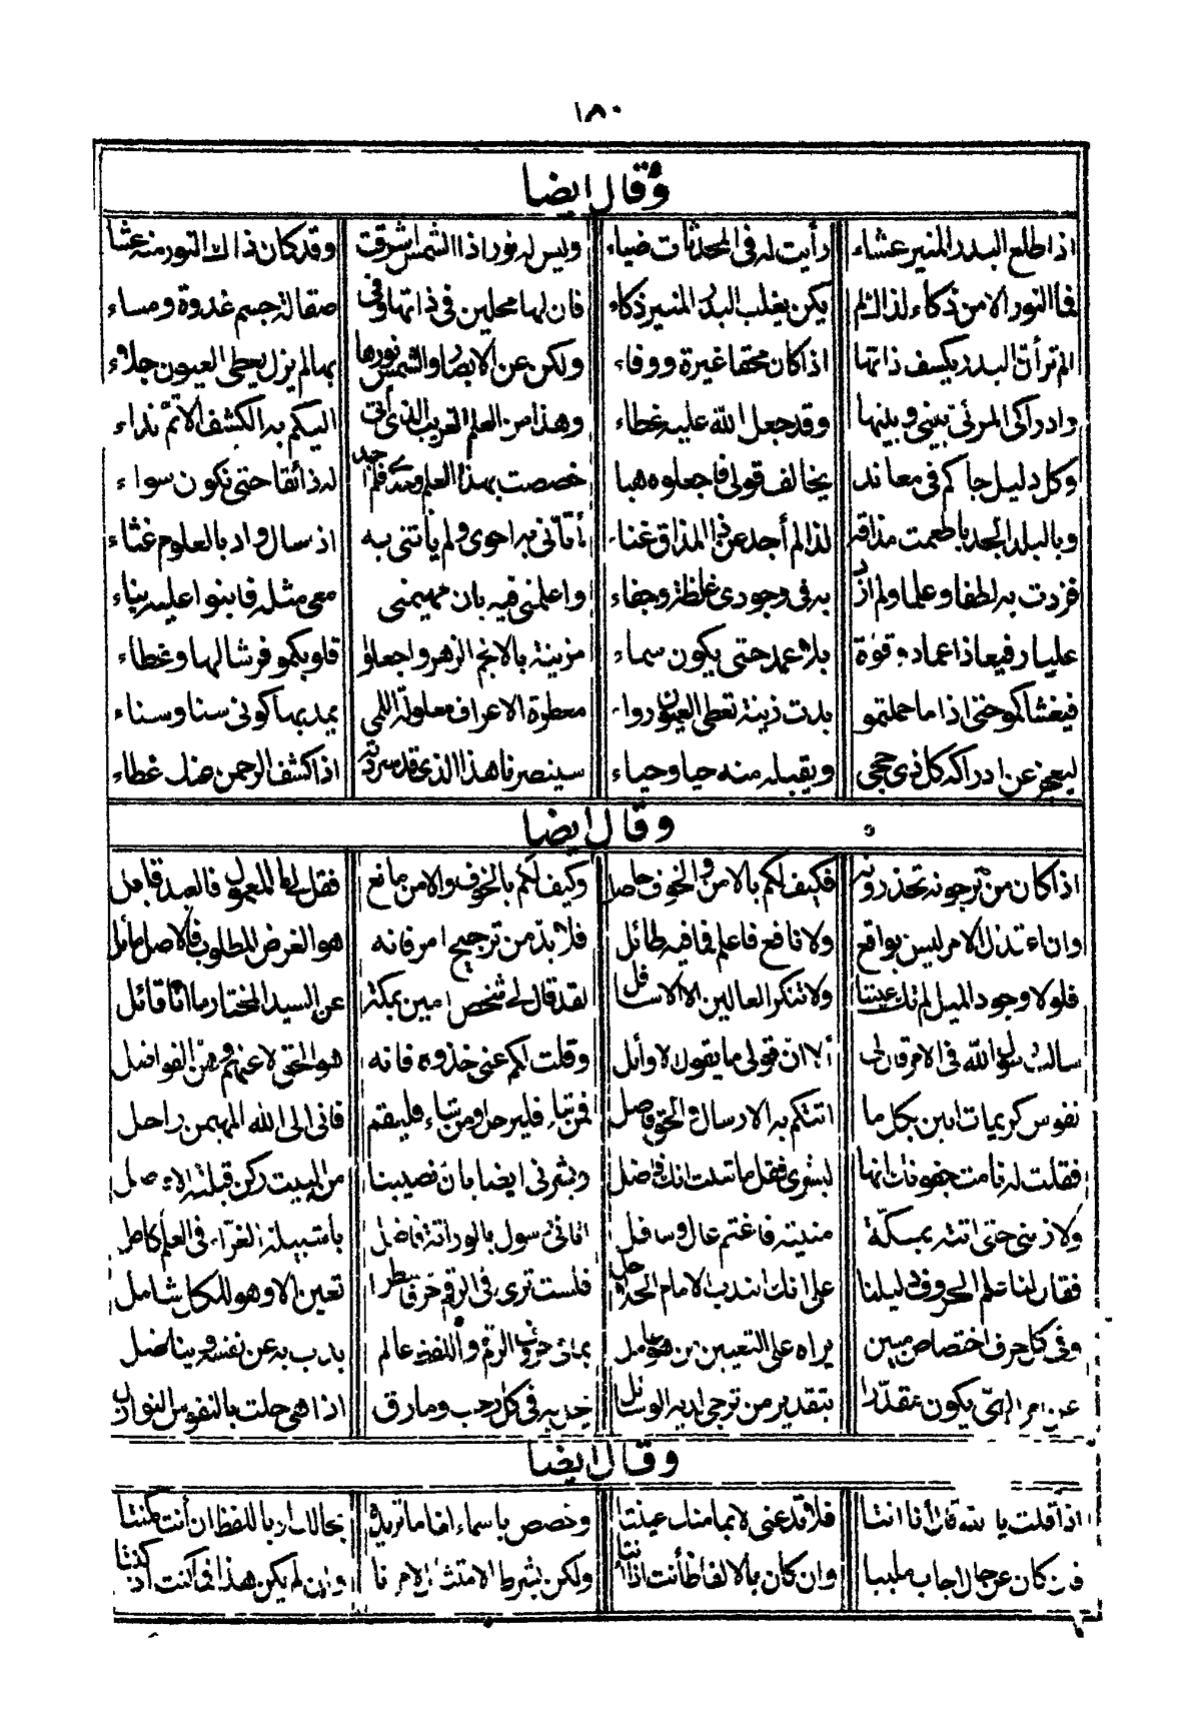 ١٨٠
وقال ايضا
اذا طلع البدر المنير عشاء رأيت له في المحدثات ضياء وليس له نور اذا الشمس اشرقت وقد كان ذاك النور منه عشا
فما النور الا من ذكاء لذاك لم يكن يغلب البدر المنير ذكاء فان لها محلين في ذاتها وفي صقالة جسم غدوة ومساء
الم تر أن البدر يكسف ذاتها اذا كان محقا غيرة ووفاء ولكن عن الابصار والشمس نورها بها لم يزل يعطى العيون جلاء
وادراكى المرئى بينى وبينها وقد جعل الله عليه غطاء وهذا من العلم الغريب الذى أتى اليكم به الكشف الاتم نداء
وكل دليل جاكم في معاند يخالف قولى فاجعلوه هبا خصصت بهذا العلم وحدى فلم اجد له ذائقا حتى نكون سواء
وبالبلد الجدباطعمت مذاقه لذا لم أجد عن ذا المذاق غناء أتانى به احوى ولم يأتنى به اذ سال واد بالعلوم غثاء
فزدت به لطفا وعلما ولم ازد به في وجودى غلظة وجفاء واعلمنى فيه بان مهيمنى معى مثله فابنوا عليه بناء
عليا رفيعا ذا عماد وقوة بلا عمد حتى يكون سماء مزينة بالانجم الزهر واجعلوا قلوبكمو فرشا لها وغطاء
فيغشاكمو حتى اذا ما حملتمو بدت زينة تعطى العيون رواء معطرة الاعراف معلولة اللمى يمد بها كونى سنا وسناء
ليعجز عن ادراكه كل ذى حجى ويقبله منه حيا وحياء سينصرنا هذا الذى قد سردته اذا كشف الرحمن عنك غطاء
وقال ايضا
اذا كان من ترجونه تحذرونه فكيف لكم بالامن والخوف حاصل وكيف لكم بالخوف والامن مانع فقل لى ما المعمول فالصدق قابل
وان اعتدال الامر ليس بواقع ولا نافع فاعلم فما فيه طائل فلا بد من ترجيح امر فانه هو الغرض المطلوب فالاصل مائل
فلولا وجود الميل لم تك عيننا ولا تنكر العالين الا الاسافل لقد قال لى شخص امين بمكة عن السيد المختار ما انا قائل
رسول الله في الامر قال لى الا ان قولى ما يقول الاوائل وقلت لكم عنى خذوه فانه هو الحق لا عنهم وهن الفواضل
نفوس كريمات اتين بكل ما اتتكم به الارسال والحق فاصل فمن شاء فليرحل ومن شاء فليقم فانى الى الله المهيمن راحل
فقلت له نامت جفونك انها لبشرى فقل ما شئت انك فاضل وبشرنى ايضا بان نصيبنا من البيت ركن قبلته
ولا زمنى حتى اتته بمكة منيته فاغتم عال وسافل اتانى رسول بالوراثة فاضل العلم كامل
فقال لنا علم الحروف دليلنا على انك الندب الامام فلست ترى في الرقم حرفا مسطرا تعين الا وهو للكل شامل
وفى كل حرف اختصاص مبين يراه على التعيين من هو عامل بمائى حروف الرقم واللفظ عالم يذب به عن نفسه ويناضل
عن امر الهى يكون مقدرا بتقدير من ترجى لديه الوسائل في كل اذا هى حلت بالنفوس النوازل
وقال ايضا
اذا قلت يا الله قال أنا انتا فلا تدعنى الا بما منك عينتا وخصص باسماء لنا ما تريده بحالك او باللفظ ان أنت مكنتا
فان كان عن حال اجاب ملبيا وان كان بالالفاظ أنت اذا نلتا ولكن بشرط الامتثال لامرنا وان لم يكن هذا فما كنت اذ كنتا